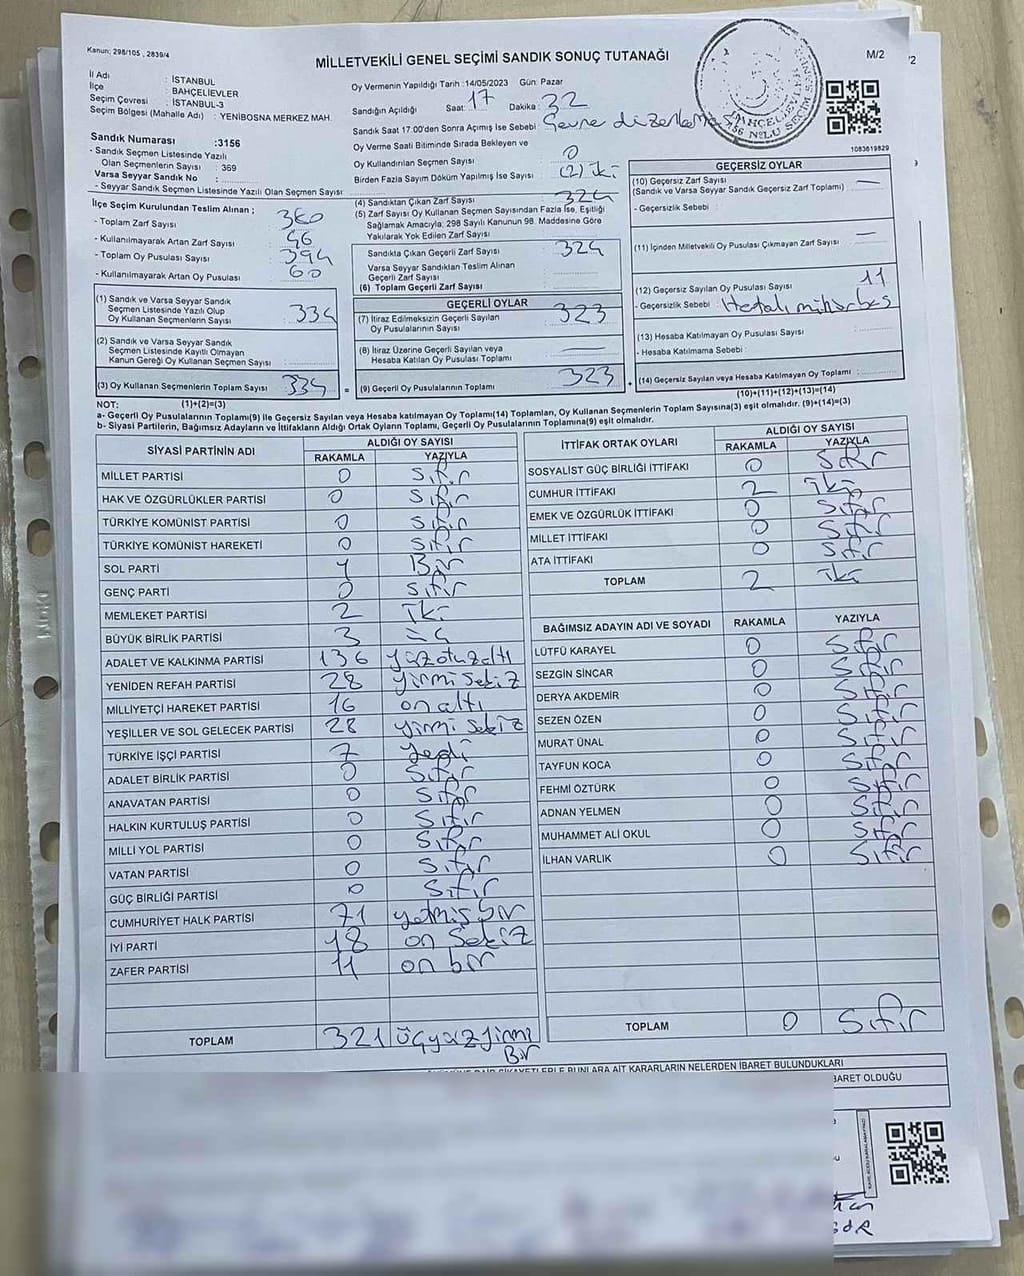 Kanun: 298/105 , 2839/4
MİLLETVEKİLİ GENEL SEÇİMİ SANDIK SONUÇ TUTANAĞI
M/2
İl Adı : İSTANBUL
İlçe : BAHÇELİEVLER
Seçim Çevresi : İSTANBUL-3
Seçim Bölgesi (Mahalle Adı) : YENİBOSNA MERKEZ MAH.
Sandık Numarası :3156
- Sandık Seçmen Listesinde Yazılı
Olan Seçmenlerin Sayısı : 369
Varsa Seyyar Sandık No :
- Seyyar Sandık Seçmen Listesinde Yazılı Olan Seçmen Sayısı:
Oy Vermenin Yapıldığı Tarih : 14/05/2023 Gün: Pazar
Sandığın Açıldığı Saat: 17 Dakika : 32
Sandık Saat 17.00'den Sonra Açımış İse Sebebi :
Oy Verme Saati Bitiminde Sırada Bekleyen ve
Oy Kullandırılan Seçmen Sayısı : 0
Birden Fazla Sayım Döküm Yapılmış İse Sayısı : (2) iki
1083619829
İlçe Seçim Kurulundan Teslim Alınan ;
- Toplam Zarf Sayısı : 380
- Kullanılmayarak Artan Zarf Sayısı : 46
- Toplam Oy Pusulası Sayısı : 394
- Kullanılmayarak Artan Oy Pusulası : 60
(1) Sandık ve Varsa Seyyar Sandık
Seçmen Listesinde Yazılı Olup
Oy Kullanan Seçmenlerin Sayısı : 334
(2) Sandık ve Varsa Seyyar Sandık
Seçmen Listesinde Kayıtlı Olmayan
Kanun Gereği Oy Kullanan Seçmen Sayısı :
(3) Oy Kullanan Seçmenlerin Toplam Sayısı : 334
(4) Sandıktan Çıkan Zarf Sayısı : 324
(5) Zarf Sayısı Oy Kullanan Seçmen Sayısından Fazla İse, Eşitliği
Sağlamak Amacıyla; 298 Sayılı Kanunun 98. Maddesine Göre
Yakılarak Yok Edilen Zarf Sayısı :
Sandıkta Çıkan Geçerli Zarf Sayısı : 324
Varsa Seyyar Sandıktan Teslim Alınan
Geçerli Zarf Sayısı :
(6) Toplam Geçerli Zarf Sayısı :
GEÇERLİ OYLAR
(7) İtiraz Edilmeksizin Geçerli Sayılan
Oy Pusulalarının Sayısı : 323
(8) İtiraz Üzerine Geçerli Sayılan veya
Hesaba Katılan Oy Pusulası Toplamı : —
(9) Geçerli Oy Pusulalarının Toplamı : 323
GEÇERSİZ OYLAR
(10) Geçersiz Zarf Sayısı : —
(Sandık ve Varsa Seyyar Sandık Geçersiz Zarf Toplamı)
- Geçersizlik Sebebi :
(11) İçinden Milletvekili Oy Pusulası Çıkmayan Zarf Sayısı : —
(12) Geçersiz Sayılan Oy Pusulası Sayısı : 11
- Geçersizlik Sebebi :
(13) Hesaba Katılmayan Oy Pusulası Sayısı :
- Hesaba Katılmama Sebebi :
(14) Geçersiz Sayılan veya Hesaba Katılmayan Oy Toplamı :
(10)+(11)+(12)+(13)=(14)
NOT: (1)+(2)=(3)
a- Geçerli Oy Pusulalarının Toplamı(9) ile Geçersiz Sayılan veya Hesaba katılmayan Oy Toplamı(14) Toplamları, Oy Kullanan Seçmenlerin Toplam Sayısına(3) eşit olmalıdır. (9)+(14)=(3)
b- Siyasi Partilerin, Bağımsız Adayların ve İttifakların Aldığı Ortak Oyların Toplamı, Geçerli Oy Pusulalarının Toplamına(9) eşit olmalıdır.
SİYASİ PARTİNİN ADI ALDIĞI OY SAYISI
RAKAMLA YAZIYLA
MİLLET PARTİSİ 0 sıfır
HAK VE ÖZGÜRLÜKLER PARTİSİ 0 sıfır
TÜRKİYE KOMÜNİST PARTİSİ 0 sıfır
TÜRKİYE KOMÜNİST HAREKETİ 0 sıfır
SOL PARTİ 1 Bir
GENÇ PARTİ 0 sıfır
MEMLEKET PARTİSİ 2 iki
BÜYÜK BİRLİK PARTİSİ 3 üç
ADALET VE KALKINMA PARTİSİ 136 yüzotuzaltı
YENİDEN REFAH PARTİSİ 28 yirmi sekiz
MİLLİYETÇİ HAREKET PARTİSİ 16 on altı
YEŞİLLER VE SOL GELECEK PARTİSİ 28 yirmi sekiz
TÜRKİYE İŞÇİ PARTİSİ 7 yedi
ADALET BİRLİK PARTİSİ 0 sıfır
ANAVATAN PARTİSİ 0 sıfır
HALKIN KURTULUŞ PARTİSİ 0 sıfır
MİLLİ YOL PARTİSİ 0 sıfır
VATAN PARTİSİ 0 sıfır
GÜÇ BİRLİĞİ PARTİSİ 0 sıfır
CUMHURİYET HALK PARTİSİ 71 yetmiş bir
İYİ PARTİ 18 on sekiz
ZAFER PARTİSİ 11 on bir
TOPLAM 321 üçyüzyirmi
Bir
İTTİFAK ORTAK OYLARI ALDIĞI OY SAYISI
RAKAMLA YAZIYLA
SOSYALİST GÜÇ BİRLİĞİ İTTİFAKI 0 sıfır
CUMHUR İTTİFAKI 2 iki
EMEK VE ÖZGÜRLÜK İTTİFAKI 0 sıfır
MİLLET İTTİFAKI 0 sıfır
ATA İTTİFAKI 0 sıfır
TOPLAM 2 iki
BAĞIMSIZ ADAYIN ADI VE SOYADI RAKAMLA YAZIYLA
LÜTFÜ KARAYEL 0 sıfır
SEZGİN SİNCAR 0 sıfır
DERYA AKDEMİR 0 sıfır
SEZEN ÖZEN 0 sıfır
MURAT ÜNAL 0 sıfır
TAYFUN KOCA 0 sıfır
FEHMİ ÖZTÜRK 0 sıfır
ADNAN YELMEN 0 sıfır
MUHAMMET ALİ OKUL 0 sıfır
İLHAN VARLIK 0 sıfır
TOPLAM 0 sıfır
BUNLARA AİT KARARLARIN NELERDEN İBARET BULUNDUKLARI
BARET OLDUĞU